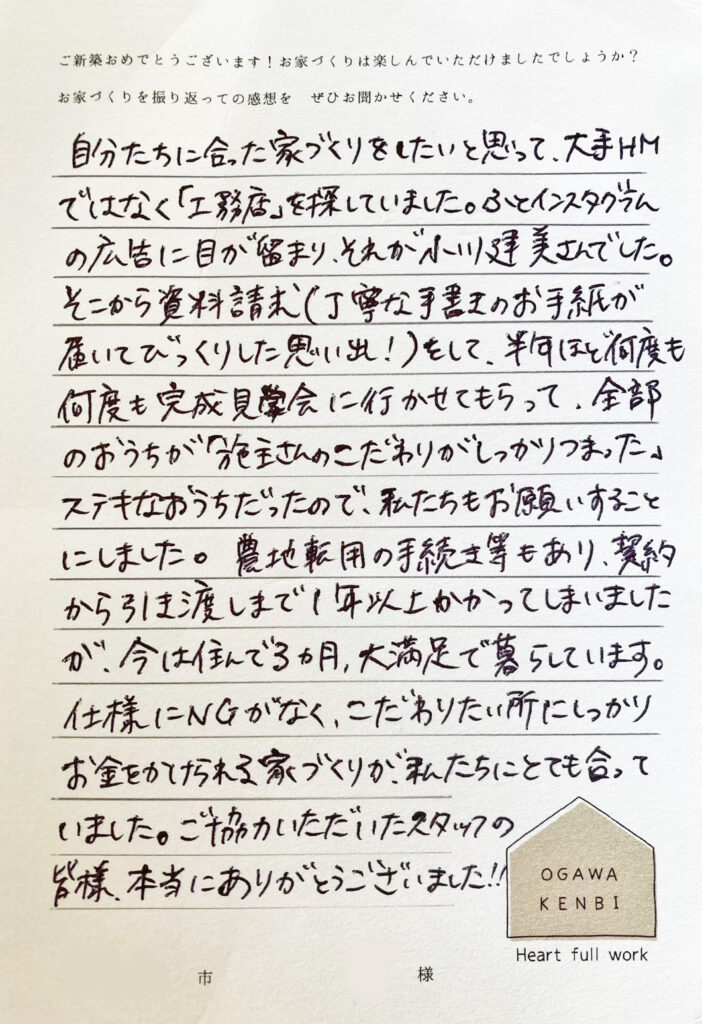 ご新築おめでとうございます！お家づくりは楽しんでいただけましたでしょうか？
お家づくりを振り返っての感想を　ぜひお聞かせください。
自分たちに合った家づくりをしたいと思って、大手HM
ではなく「工務店」を探していました。ふとインスタグラム
の広告に目が留まり、それが小川建美さんでした。
そこから資料請求(丁寧な手書きのお手紙が
届いてびっくりした思い出！)をして、半年ほど何度も
何度も完成見学会に行かせてもらって、全部
のおうちが「施主さんのこだわりがしっかりつまった」
ステキなおうちだったので、私たちもお願いすること
にしました。農地転用の手続き等もあり、契約
から引き渡しまで1年以上かかってしまいました
が、今は住んで3ヵ月、大満足で暮らしています。
仕様にNGがなく、こだわりたい所にしっかり
お金をかけられる家づくりが、私たちにとても合って
いました。ご協力いただいたスタッフの
皆様、本当にありがとうございました!!
OGAWA
KENBI
Heart full work
市　様